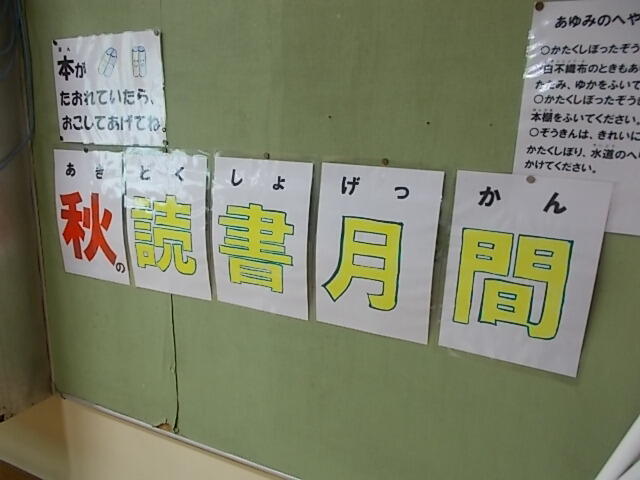 ほん
本が
たおれていたら、
おこしてあげてね。
あき どく しょ げっ かん
秋の読書月間
あゆみのへや
○かたくしぼったぞう
白不織布のときもあ
たたみ、ゆかをふいて
○かたくしぼったぞうき
本棚をふいてください。
○ぞうきんは、きれいに
かたくしぼり、水道のへ
かけてください。